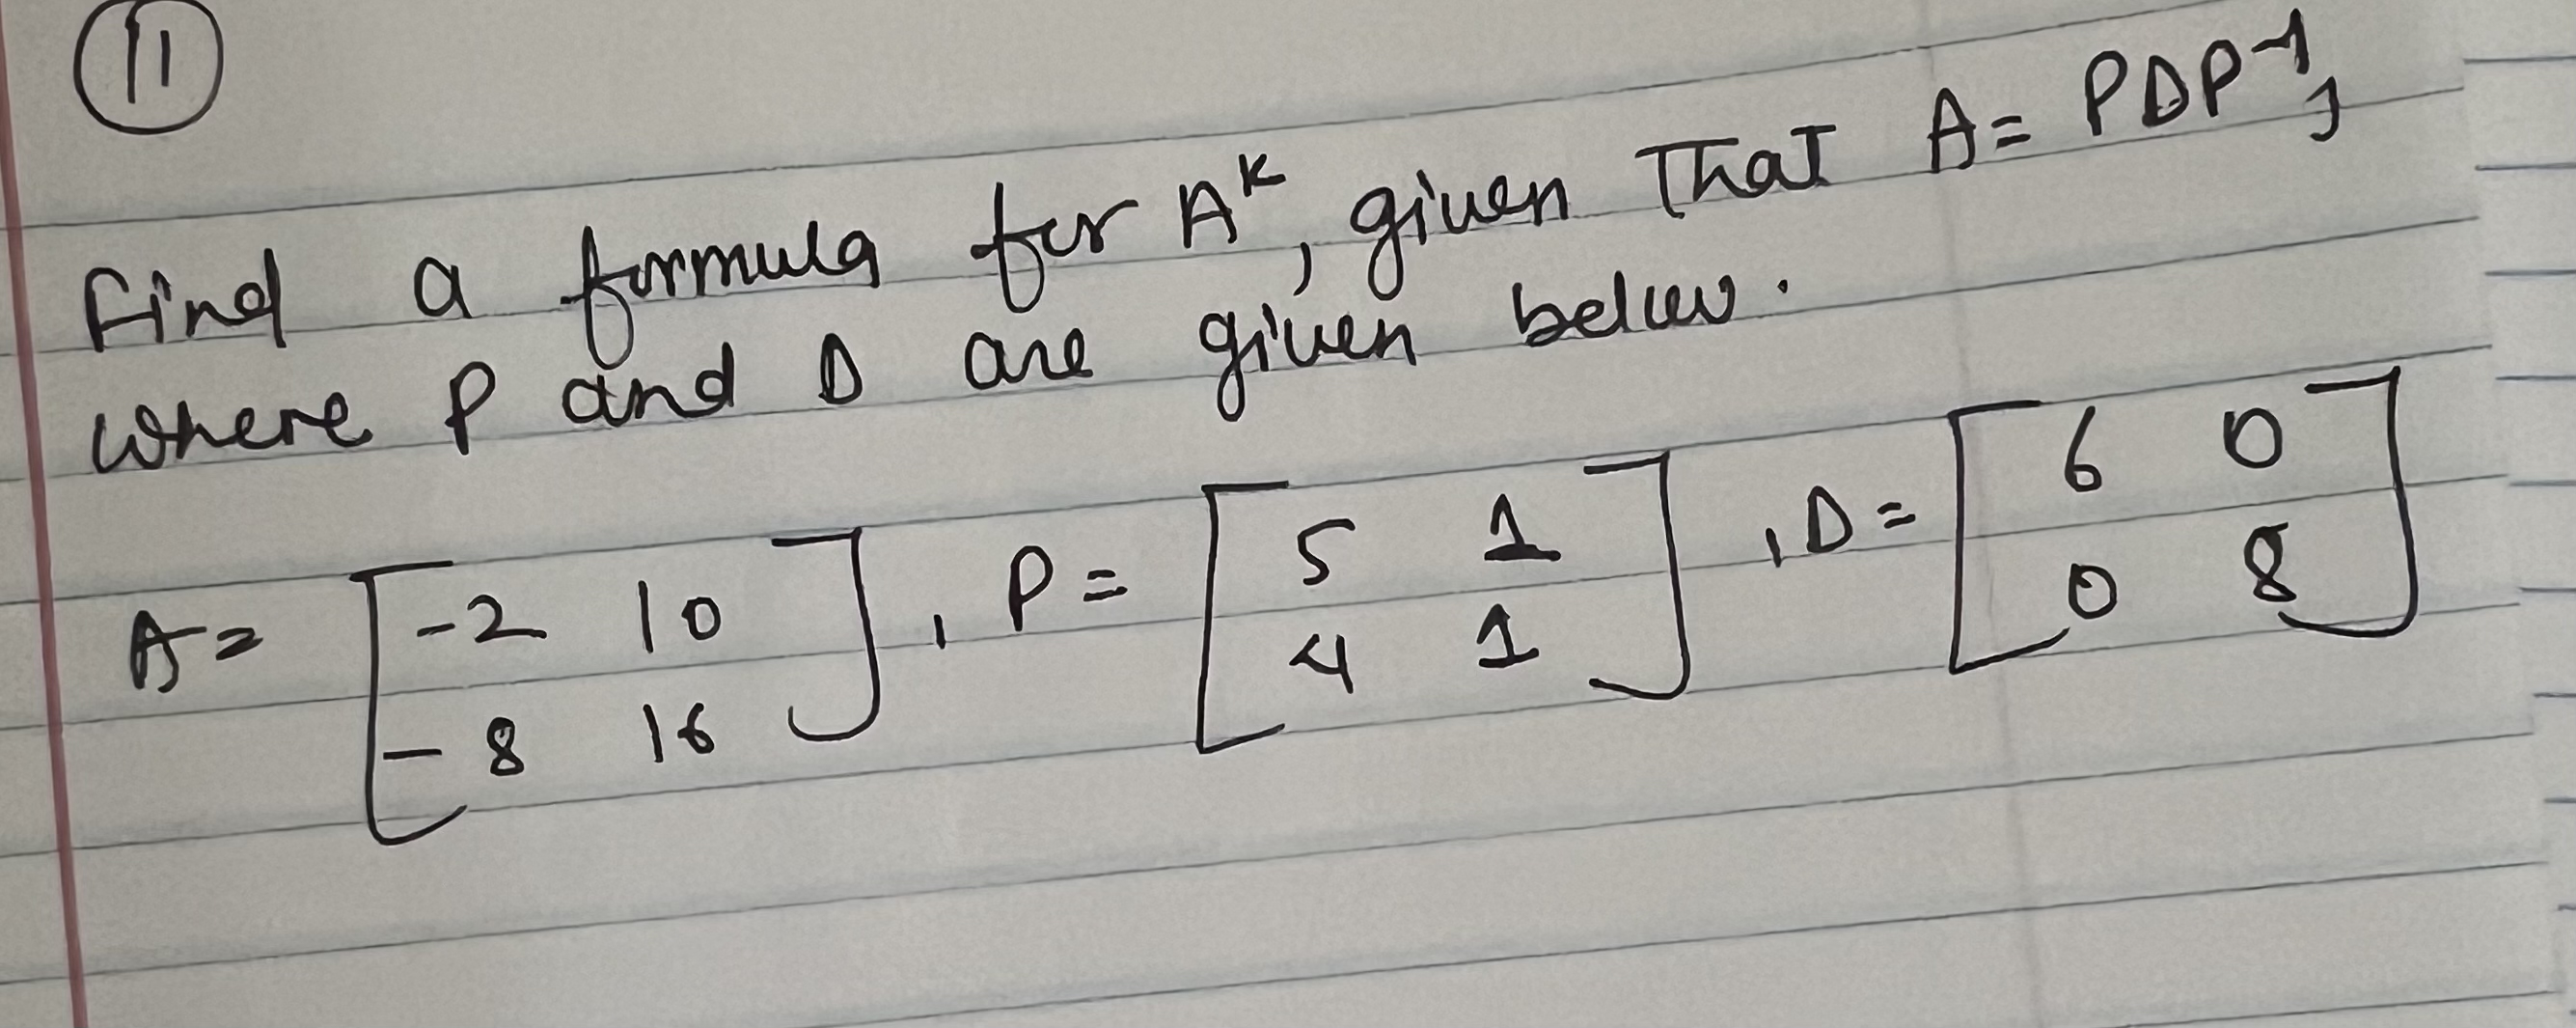 11
Find a formula for A^k, given That A = PDP^-1,
where P and D are given below.
A = [-2 10; -8 16], P = [5 1; 4 1], D = [6 0; 0 8]